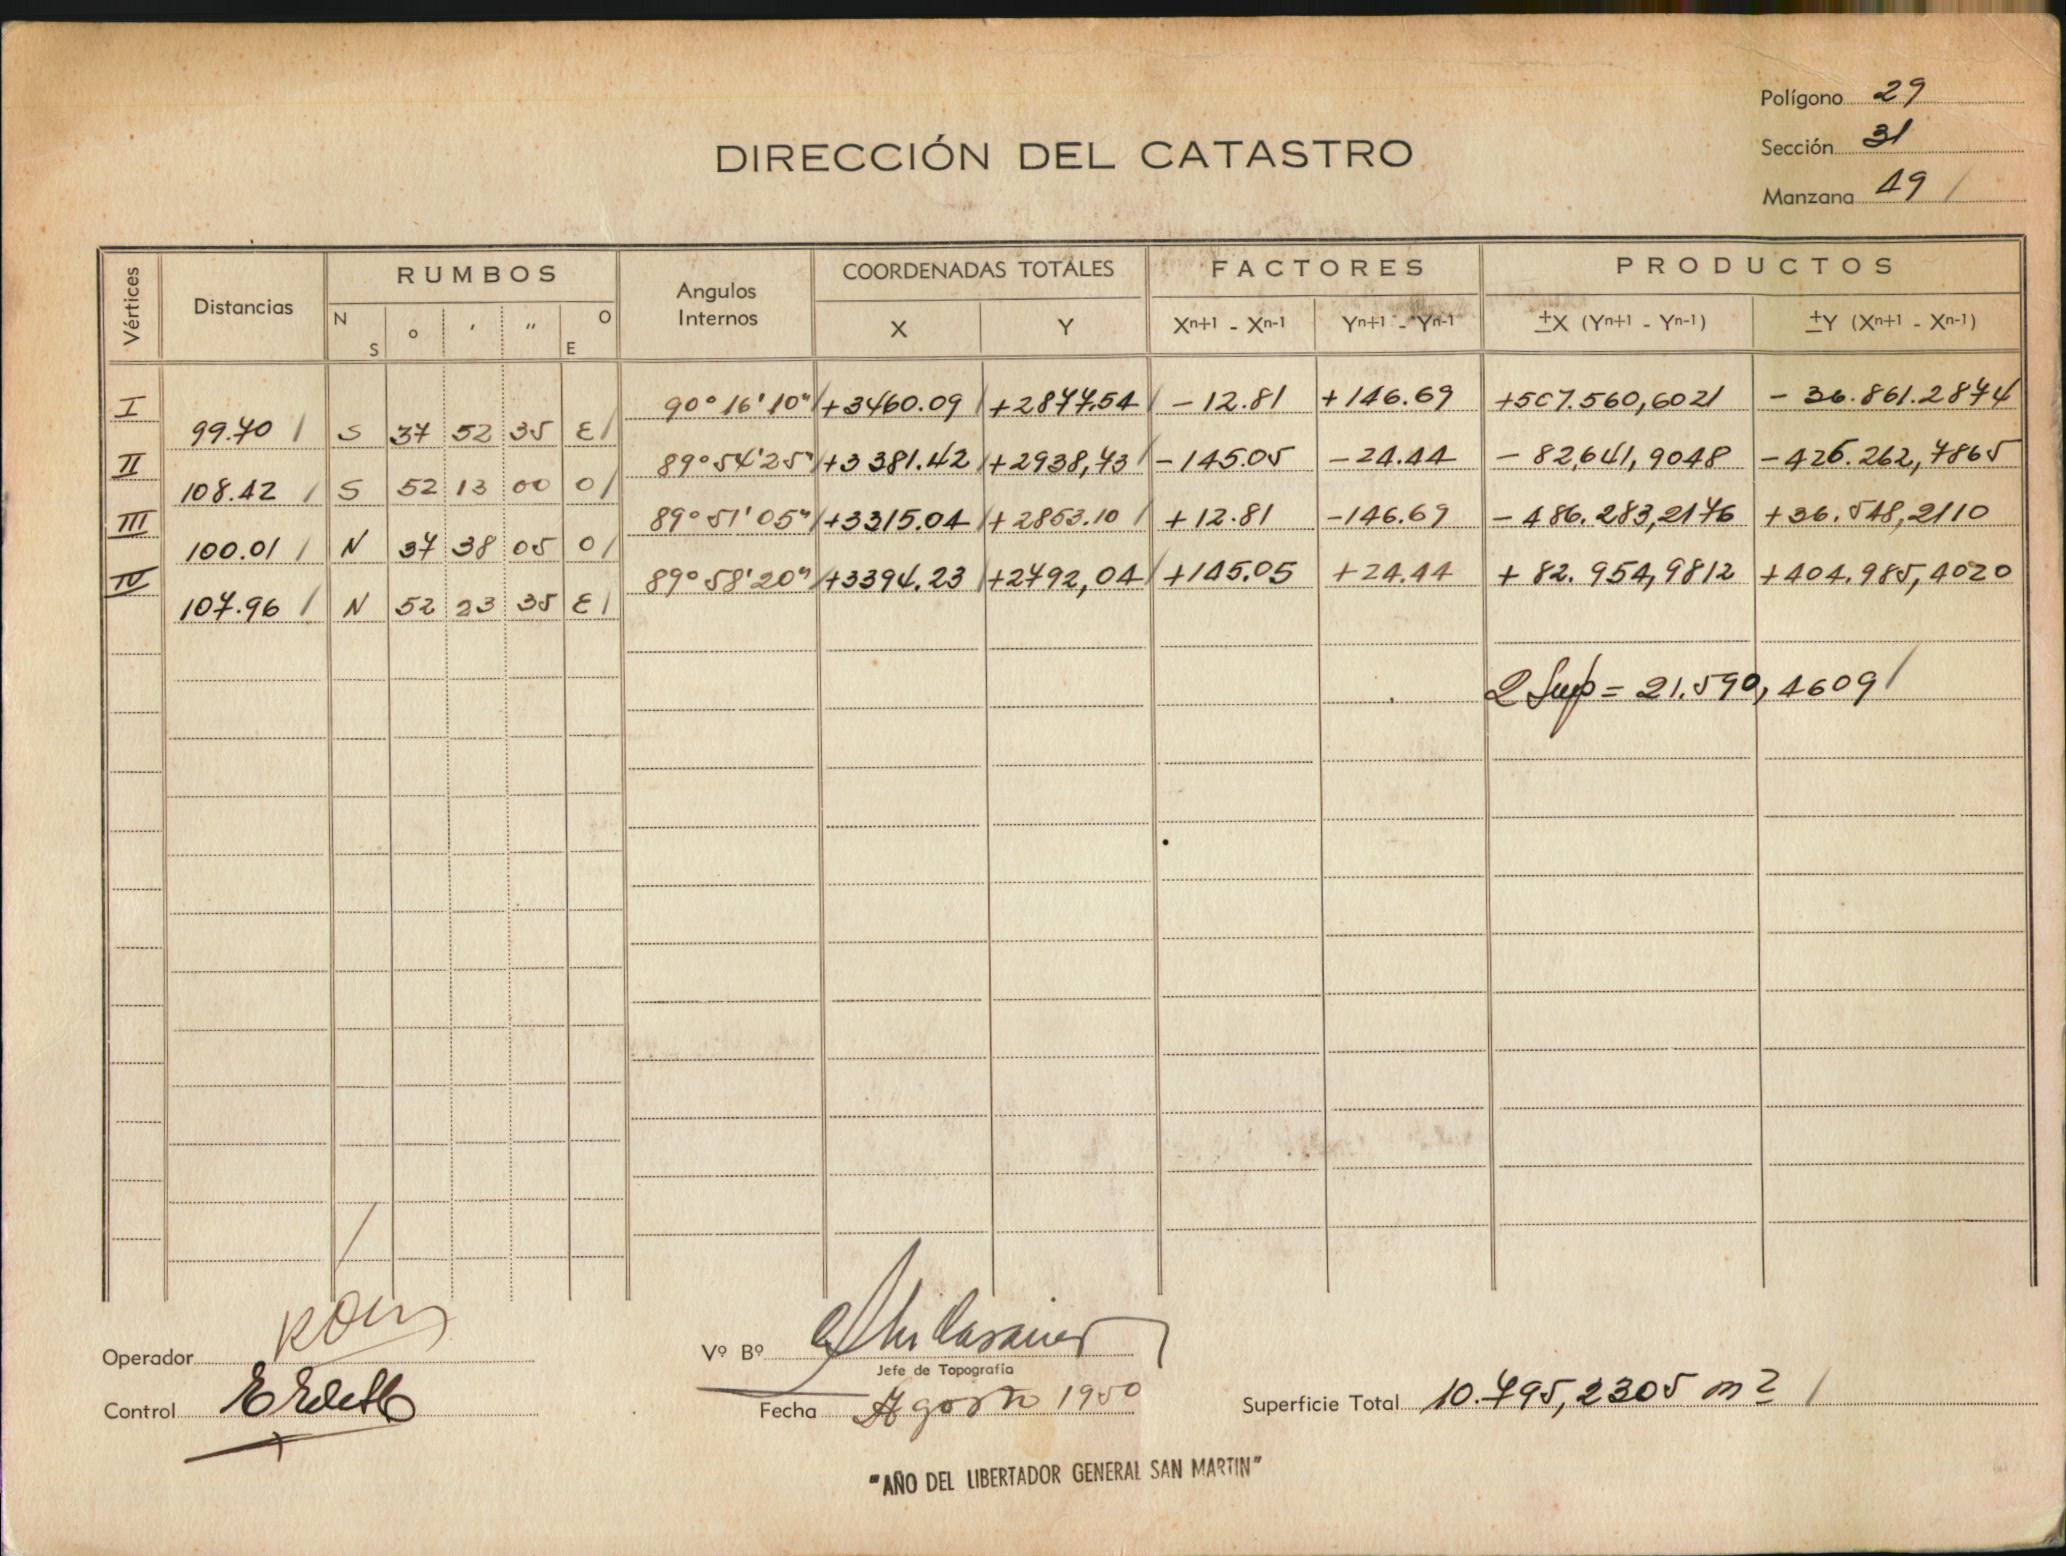 Polígono 29
Sección 31
Manzana 49 /
DIRECCIÓN DEL CATASTRO
Vértices Distancias RUMBOS Angulos Internos COORDENADAS TOTALES FACTORES PRODUCTOS
N S o ' " O E X Y Xn+1 - Xn-1 Yn+1 - Yn-1 ±X (Yn+1 - Yn-1) ±Y (Xn+1 - Xn-1)
I 90° 16' 10" / +3460.09 / +2877.54 / - 12.81 +146.69 +507.560,6021 - 36.861.2874
99.70 / S 37 52 35 E /
II 89° 54' 25" / +3381.42 / +2938,73 / -145.05 -24.44 - 82,641,9048 -426.262,7865
108.42 / S 52 13 00 O /
III 89° 51' 05" / +3315.04 / +2853.10 / +12.81 -146.69 -486.283,2176 +36.548,2110
100.01 / N 37 38 05 O /
IV 89° 58' 20" / +3394.23 +2792,04 / +145.05 +24.44 + 82.954,9812 +404.985,4020
107.96 / N 52 23 35 E /
2 Sup = 21.590,4609 /
Operador
Control
Vº Bº
Jefe de Topografía
Fecha Agosto 1950
Superficie Total 10.795,2305 m2 /
"AÑO DEL LIBERTADOR GENERAL SAN MARTIN"